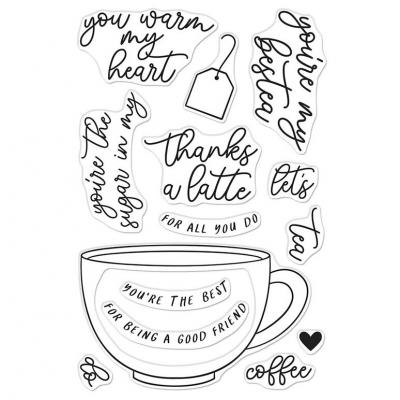 you warm
my
heart
you're my
bestea
you're the
sugar in my
Thanks
a latte
let's
FOR ALL YOU DO
tea
YOU'RE THE BEST
FOR BEING A GOOD FRIEND
coffee